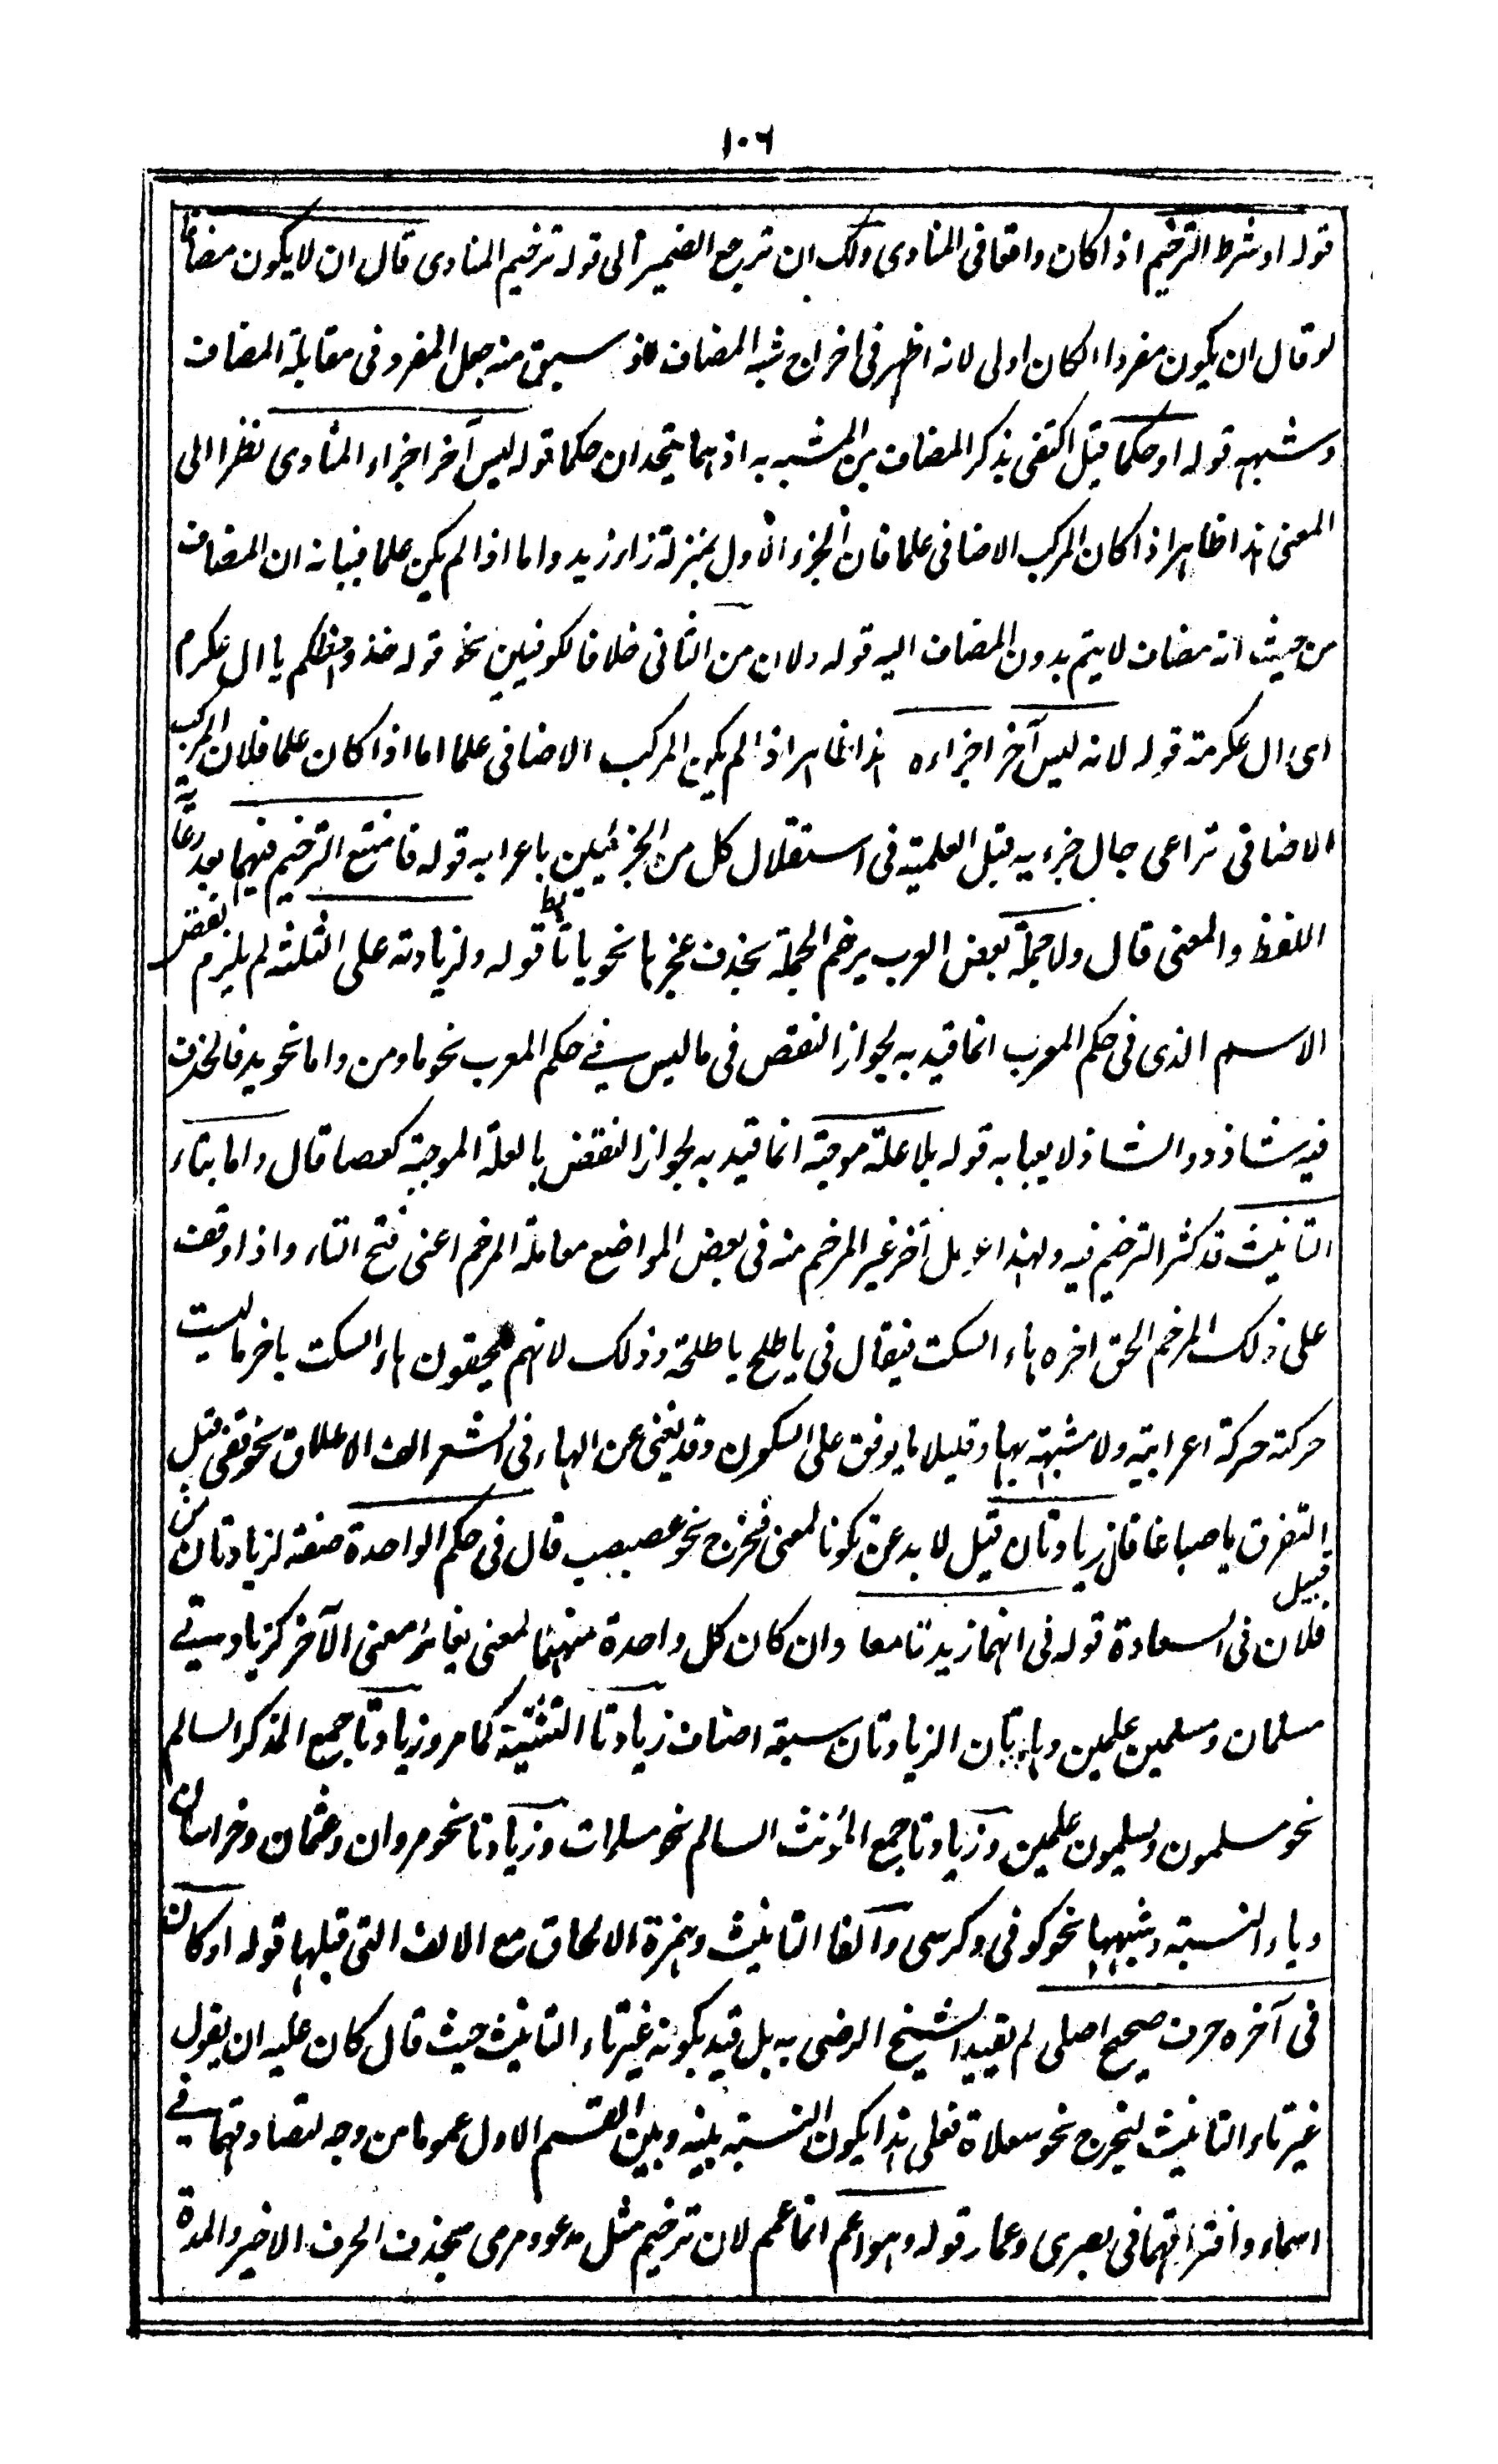 ١٠٦
قوله او شرط الترخيم اذا كان واقعا فى المنادى ولك ان ترجع الضمير الى قوله ترخيم المنادى قال ان لا يكون مضافا
لو قال ان يكون مفردا لكان اولى لانه اظهر فى اخراج شبه المضاف اذ سبق منه جعل المفرد فى مقابلة المضاف
وشبهه قوله او حكما قيل اكتفى بذكر المضاف من المشبه به اذ هما يتحدان حكما قوله ليس آخر اجزاء المنادى نظرا الى
المعنى هذا ظاهر اذا كان المركب الاضافى علما فان الجزء الاول بمنزلة زاء زيد واما اذا لم يكن علما فبيانه ان المضاف
من حيث انه مضاف لا يتم بدون المضاف اليه قوله ولا من الثانى خلافا للكوفيين نحو قوله خذوا حظكم يا ال عكرم
اى ال عكرمة قوله لانه ليس آخر اجزاءه هذا ظاهر اذا لم يكن المركب الاضافى علما اما اذا كان علما فلان المركب
الاضافى تراعى حال جزءيه قبل العلمية فى استقلال كل من الجزئيين باعرابه قوله فامتنع الترخيم فيهما بعد رعاية
اللفظ والمعنى قال ولا جملة بعض العرب يرخم الجملة بحذف عجزها نحو يا تابط قوله ولزيادته على الثلثة لم يلزم نقض
الاسم الذى فى حكم المعرب انما قيد به لجواز النقص فى ما ليس فى حكم المعرب نحو ما ومن واما نحو يد فالحذف
فيه شاذ والشاذ لا يعبا به قوله بلا علة موجبة انما قيد به لجواز النقض بالعلة الموجبة كعصا قال واما بتاء
التانيث قد كثر الترخيم فيه ولهذا عومل آخر غير المرخم منه فى بعض المواضع معاملة المرخم اعنى فتح التاء واذا وقف
على ذلك المرخم الحق اخره هاء السكت فيقال فى يا طلح يا طلحة وذلك لانهم يلحقون هاء السكت باخر ما ليست
حركته حركة اعرابية ولا مشبهة بها وقليلا ما يوقف على السكون وقد يغنى عن الهاء فى الشعر الف الاطلاق نحو قفى قبل
التفرق يا ضباعا قال زيادتان قيل لا بد عن تكونا لمعنى فخرج نحو عصبصب قال فى حكم الواحدة صفة لزيادتان من قبيل
فلان فى السعادة قوله فى انهما زيدتا معا وان كان كل واحدة منهما لمعنى يغائر معنى الآخر كزيادتى
مسلمان ومسلمين علمين وهاتان الزيادتان سبعة اصناف زيادتا التثنية كما مر وزيادتا جمع المذكر السالم
نحو مسلمون ومسلمين علمين وزيادتا جمع المؤنث السالم نحو مسلمات وزيادتا نحو مروان وعثمان وخراسان
وياء النسبة وشبهها نحو كوفى وكرسى والفا التانيث وهمزة الالحاق مع الالف التى قبلها قوله او كان
فى آخره حرف صحيح اصلى لم يقيد الشيخ الرضى به بل قيد بكونه غير تاء التانيث حيث قال كان عليه ان يقول
غير تاء التانيث ليخرج نحو سعلاة فعلى هذا يكون النسبة بينه وبين القسم الاول عموما من وجه لتصادقهما فى
اسماء وافتراقهما فى بصرى وعمار قوله وهو اعم انما عمم لان ترخيم مثل مدعو ومرمى بحذف الحرف الاخير والمدة